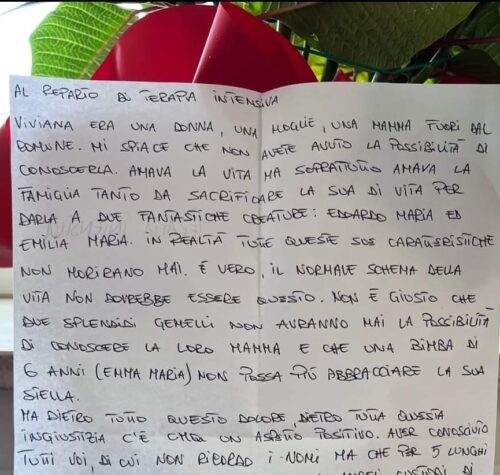 AL REPARTO DI TERAPIA INTENSIVA
VIVIANA ERA UNA DONNA, UNA MOGLIE, UNA MAMMA FUORI DAL
COMUNE. MI SPIACE CHE NON AVETE AVUTO LA POSSIBILITÀ DI
CONOSCERLA. AMAVA LA VITA MA SOPRATTUTTO AMAVA LA
FAMIGLIA TANTO DA SACRIFICARE LA SUA DI VITA PER
DARLA A DUE FANTASTICHE CREATURE: EDOARDO MARIA ED
EMILIA MARIA. IN REALTÀ TUTTE QUESTE SUE CARATTERISTICHE
NON MORIRANO MAI. È VERO, IL NORMALE SCHEMA DELLA
VITA NON DOVREBBE ESSERE QUESTO. NON È GIUSTO CHE
DUE SPLENDIDI GEMELLI NON AVRANNO MAI LA POSSIBILITÀ
DI CONOSCERE LA LORO MAMMA E CHE UNA BIMBA DI
6 ANNI (EMMA MARIA) NON POSSA PIÙ ABBRACCIARE LA SUA
STELLA.
MA DIETRO TUTTO QUESTO DOLORE, DIETRO TUTTA QUESTA
INGIUSTIZIA C'È UN ASPETTO POSITIVO. AVER CONOSCIUTO
TUTTI VOI, DI CUI NON RICORDO I NOMI MA CHE PER 5 LUNGHI